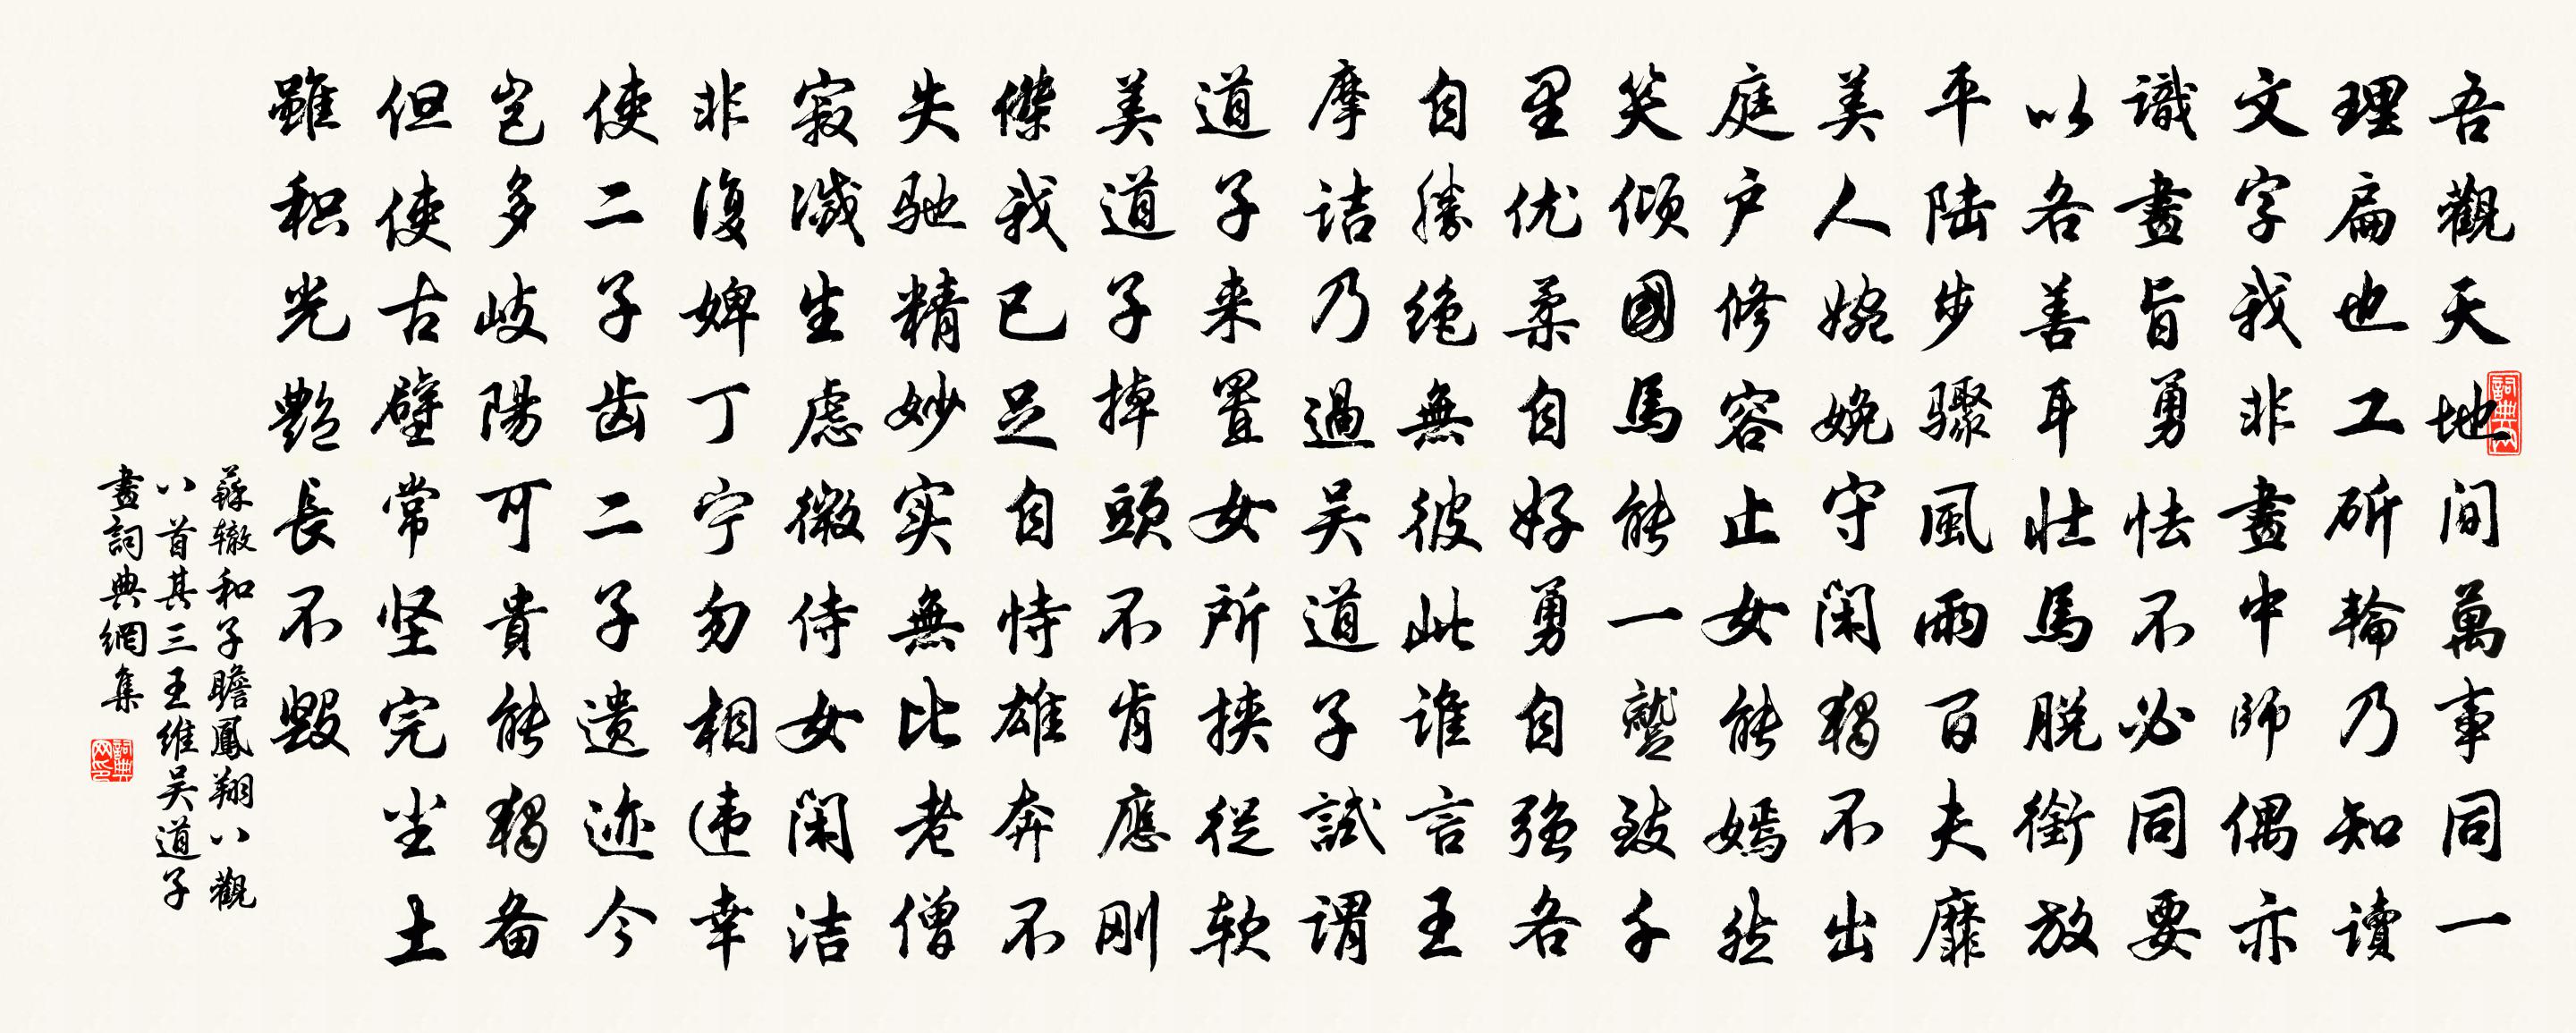 吾觀天地间萬事同一
理扁也工斫輪乃知讀
文字我非畫中师偶亦
識畫旨勇怯不必同要
以各善耳壮馬脱銜放
平陆步骤風雨百夫靡
美人婉娩守闲獨不出
庭户修容止女能嫣然
笑倾國馬能一蹵致千
里优柔自好勇自强各
自勝绝無彼此谁言王
摩诘乃過吴道子試謂
道子来置女所挟從软
美道子掉頭不肯應刚
傑我已足自恃雄奔不
失驰精妙实無比老僧
寂滅生慮微侍女闲洁
非復婢丁宁勿相违幸
使二子齿二子遗迹今
岂多岐陽可貴能獨备
但使古壁常坚完尘土
雖积光艷長不毁
蘇辙和子瞻鳳翔八觀
八首其三王维吴道子
畫詞典網集
詞典
詞典网印